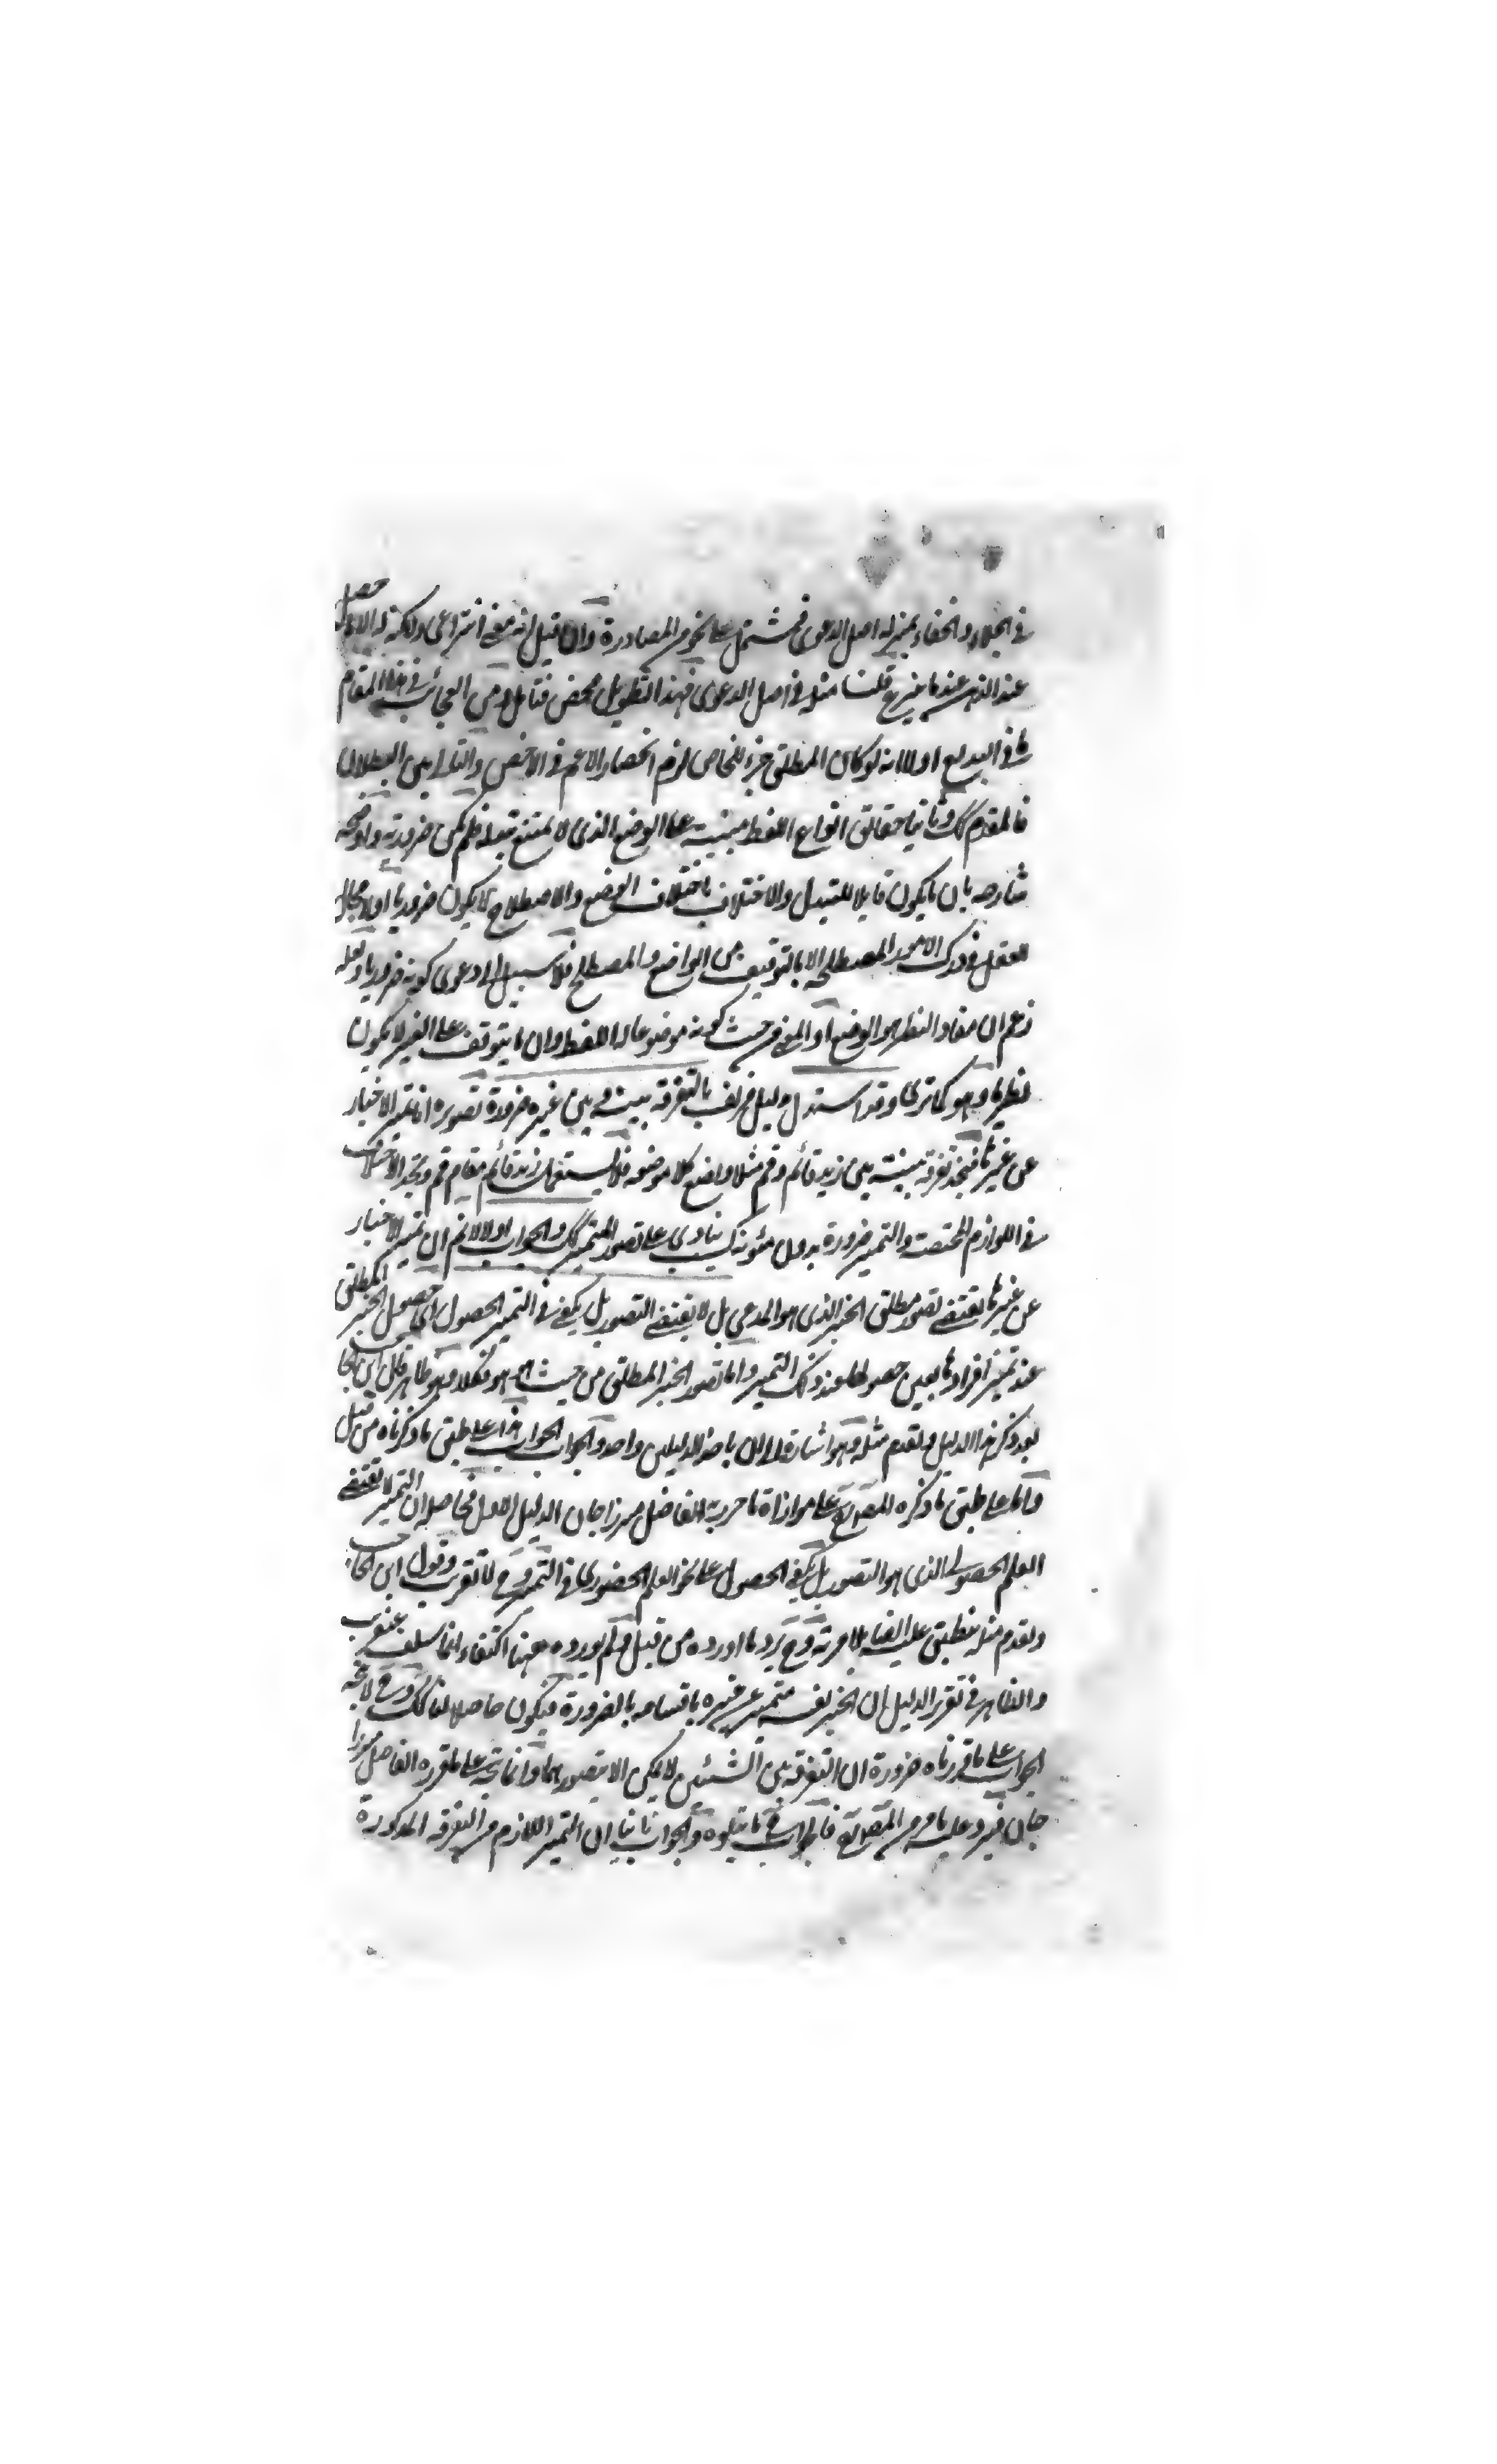 في الجلاء والخفاء بمنزلة اصل الدعوى فمشتمل على نحو من المصادرة وان قيل انه معنى انتزاعي ولكنه له الا حصل
عند الذهن عندما قلنا مثله في اصل الدعوى فهذا تطويل محض فتامل ومن العجائب في هذا المقام
ما في البديع اولا انه لو كان المطلق جزء للخاص لزم انحصار الاعم في الاخص والتالي بين البطلان
فالمقدم كك وثانيا حقائق انواع اللفظ مبنية على الوضع الذي لا يمتنع تبدله فلم يكن ضرورية واوضحه
شارحه بان ما يكون قابلا للتبدل والاختلاف باختلاف الوضع والاصطلاح لا يكون ضروريا اولا مجال
للعقل في درك الامور المصطلحة الا بالتوقيف من الواضع والمصطلح فلا سبيل الى دعوى كونه ضروريا ولعله
زعم ان مفاد النظر هو الوضع او المعنى من حيث كونه موضوعا له اللفظ وان ما يتوقف على الغير لا يكون
نظريا وهو كما ترى وقد استدل دليل مزيف بالتفرقة بينه وبين غيره ضرورة تصوره انا نميز الاخبار
عن غيرها فنجد تفرقة بينة بين زيد قائم وقم مثلا واضع كلا موضعه فلا يستعمل زيد قائم مقام قم ونجد الاختلاف
في اللوازم المختصة والتميز ضرورة بدون مئونة كسب ينادي على تصور المتميز كك والجواب اولا لا نم ان تميز الاخبار
عن غيرها يقتضي تصور مطلق الخبر الذي هو المدعى بل لا يقتضي التصور بل يكفي في التميز الحصول اي حصول الخبر المطلق
عند تميز افرادها بعين حصولها عند ذلك التميز واما تصور الخبر المطلق من حيث هو هو فكلا وهو ظاهر قال ابن الحاجب
بعد ذكر هذا الدليل وتقدم مثله وهو اشارة الى ان ماخذ الدليلين واحد والجواب الجواب هذا على طبق ما ذكرناه من قبل
واما على طبق ما ذكره المص على موازاة ما حرر به الفاضل ميرزا جان الدليل الاول فحاصله ان التميز لا يقتضي
العلم الحصولي الذي هو التصور بل يكفي الحصول على نحو العلم الحضوري في التميز وح لا تقريب وقول ابن الحاجب
وتقدم مثله ينطبق عليه ايضا بلا مرية وح يرد ما اورده من قبل ولم يورده ههنا اكتفاء بما سلف عنقريب
والظاهر في تقرير الدليل ان الخبر بنفسه متميز عن غيره باقسامه بالضرورة فيكون حاصلا لنا كك وح لا يتجه
الجواب على ما قررناه ضرورة ان التفرقة بين الشيئين لا يمكن الا بتصورهما وانما يتجه على ما قرره الفاضل ميرزا
جان فيرد عليه ما مر من المص فالجواب في ما يتلوه والجواب ثانيا ان التميز اللازم من التفرقة المذكورة